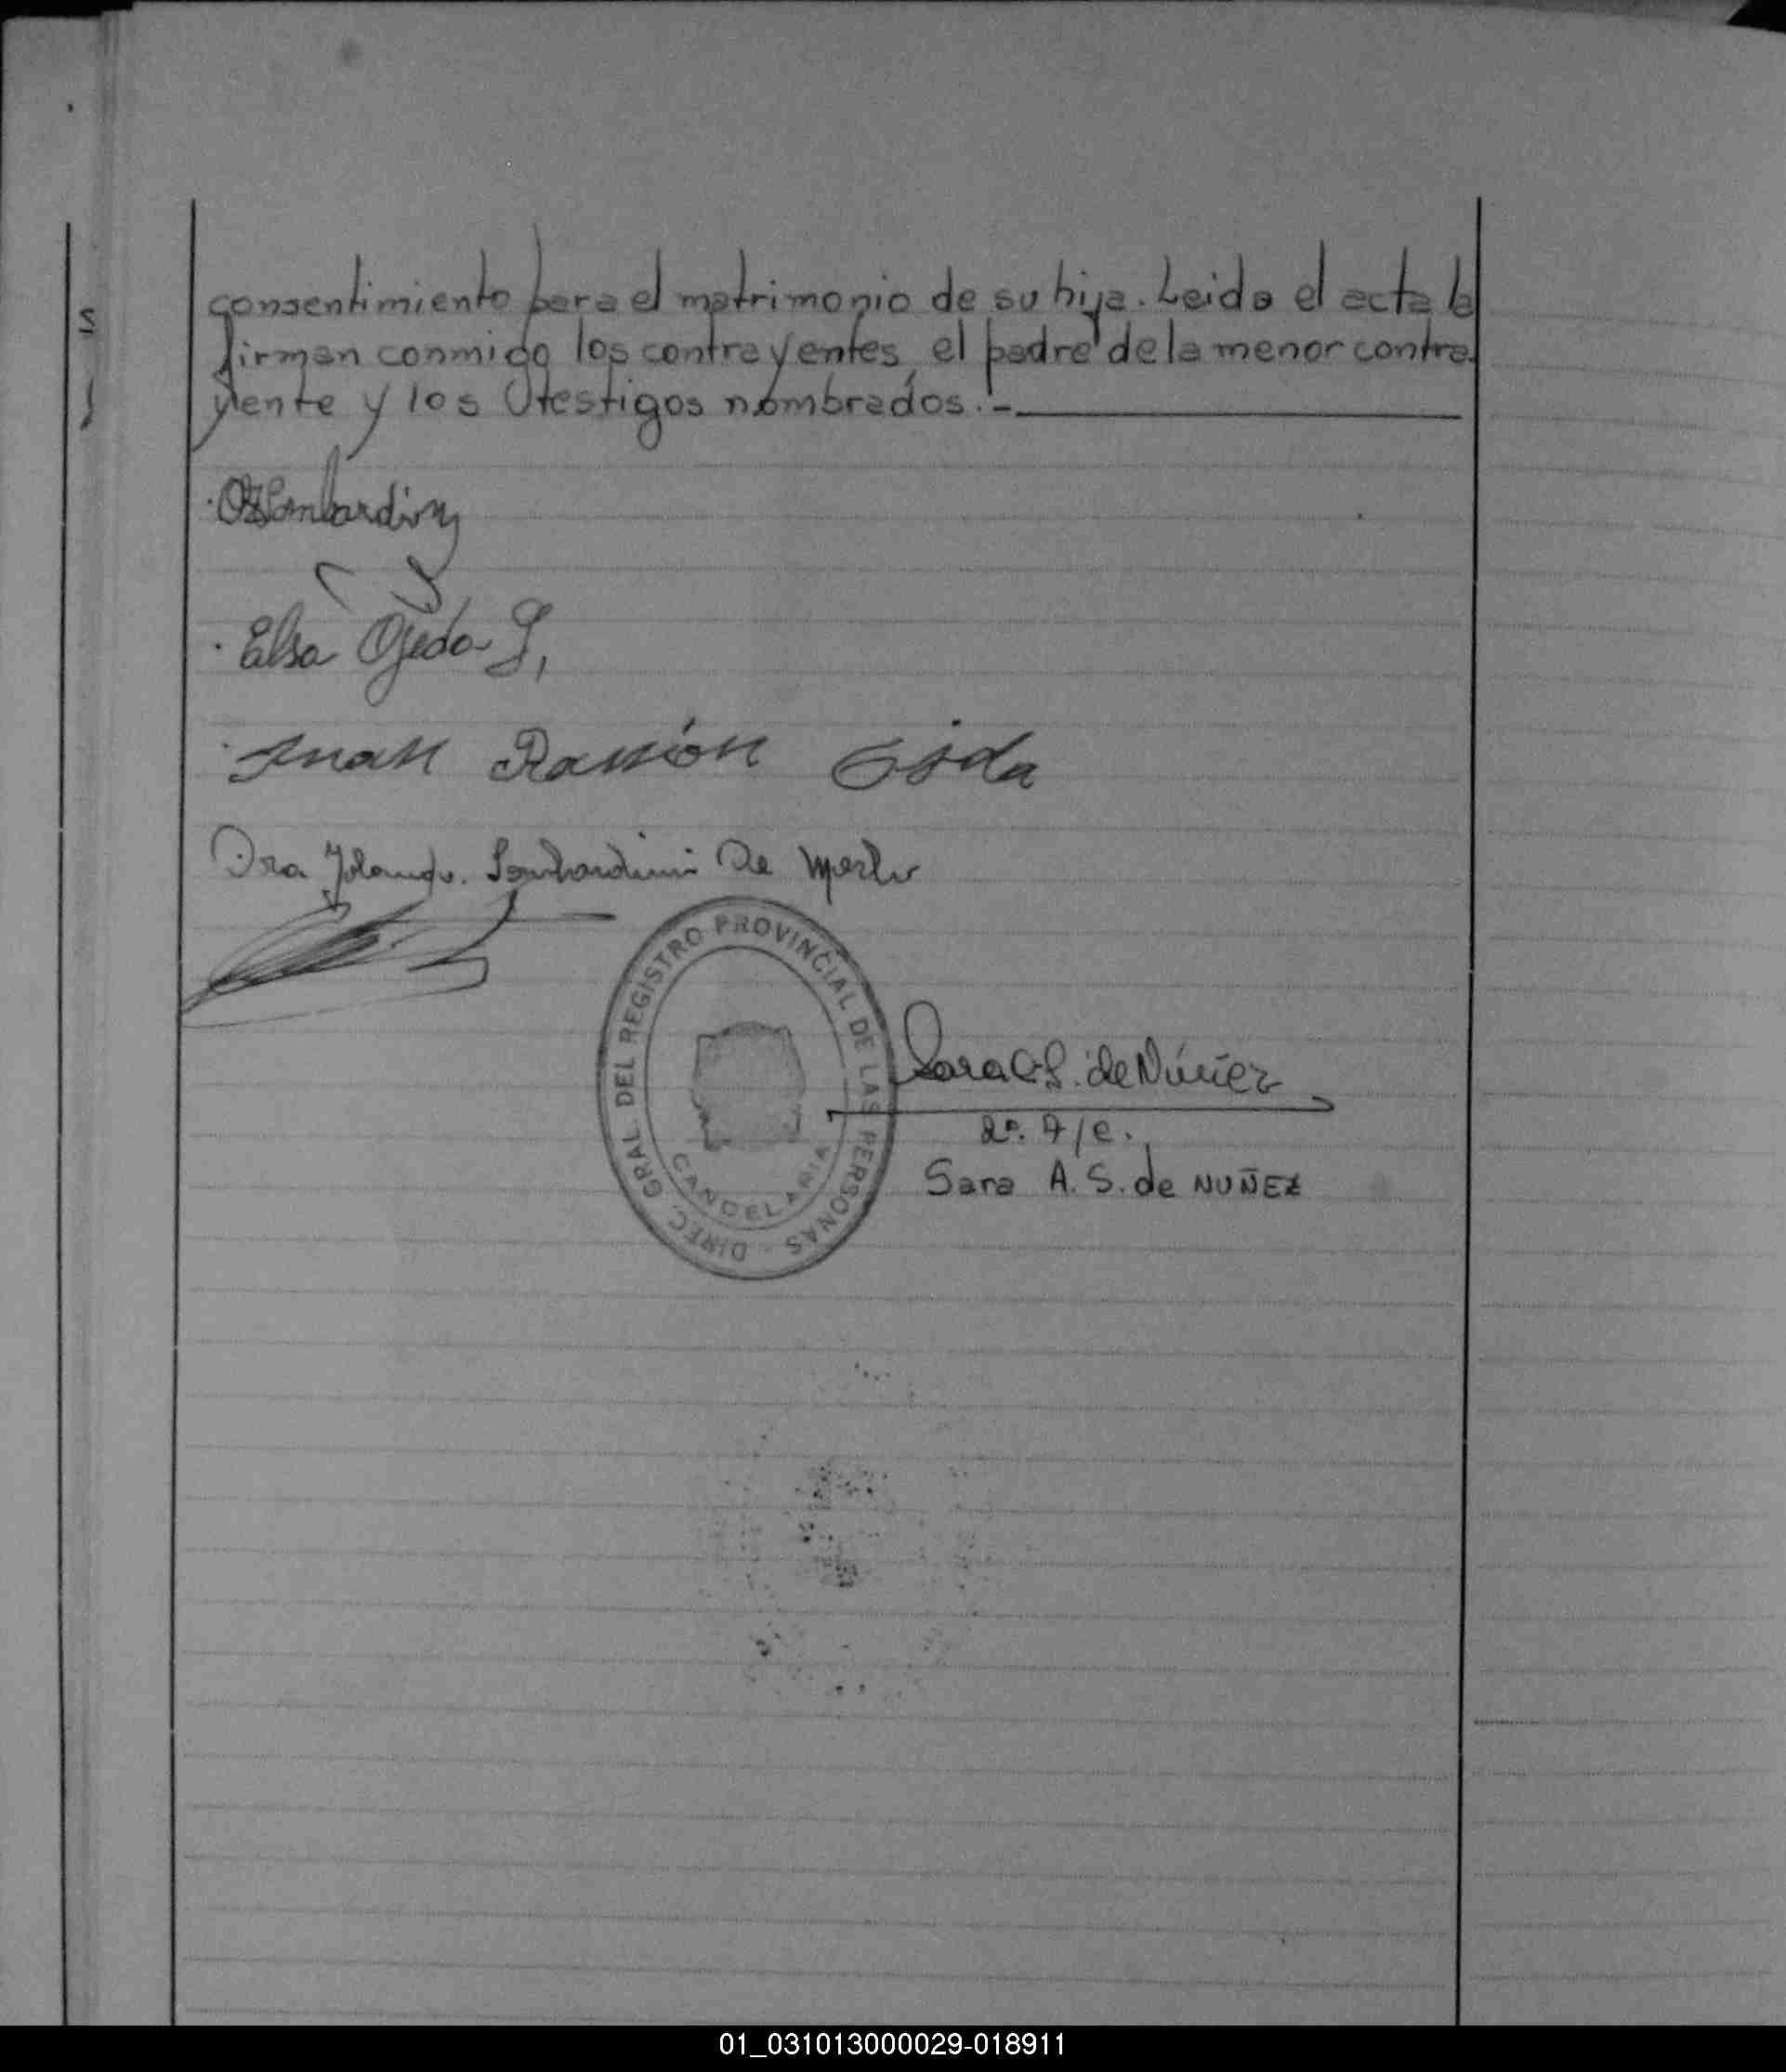 S
consentimiento para el matrimonio de su hija. Leida el acta la
firman conmigo los contrayentes, el padre de la menor contra
yente y los testigos nombrados.-
Lombardini
Elsa Ojeda
Juan Ramón Ojeda
Dra Yolanda Lombardini De Merlo
DIREC. GRAL DEL REGISTRO PROVINCIAL DE LAS PERSONAS -
CANDELARIA
Sara A S. de Núñez
Sara A. S. de NUÑEZ
01_031013000029-018911